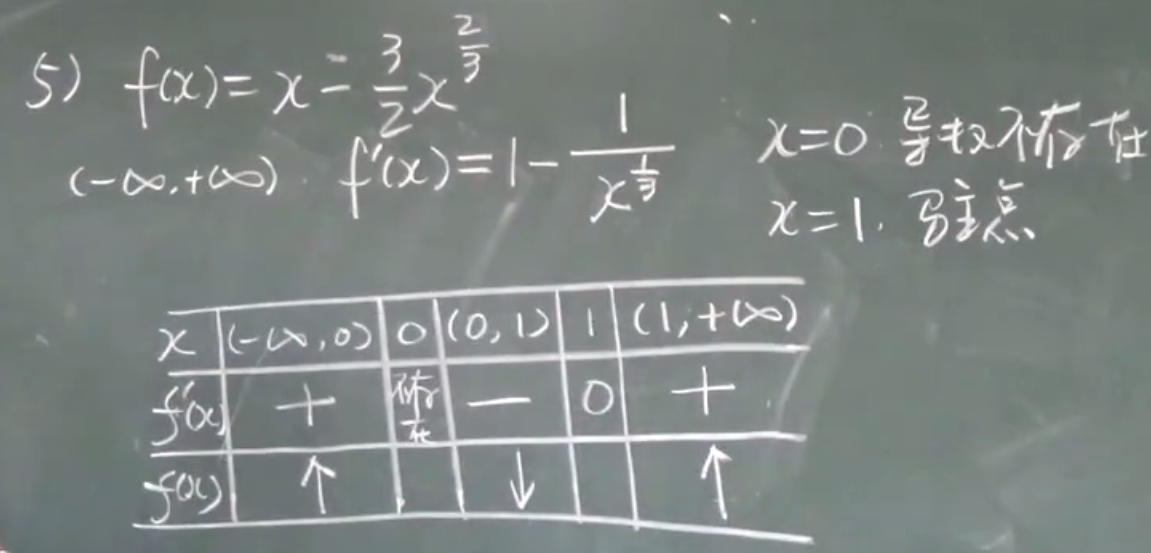 5) f(x)=x-\frac{3}{2}x^{\frac{2}{3}}
(-∞,+∞). f'(x)=1-\frac{1}{x^{\frac{1}{3}}}
x=0 导数不存在
x=1. 驻点
x (-∞,0) 0 (0,1) 1 (1,+∞)
f'(x) + 不存在 — 0 +
f(x) ↑ ↓ ↑